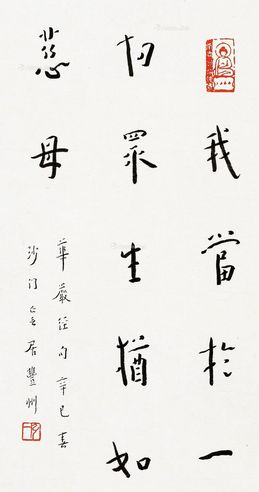 我當於一
切眾生猶如
慈母
華嚴經句辛巳春
沙門一音居豐州